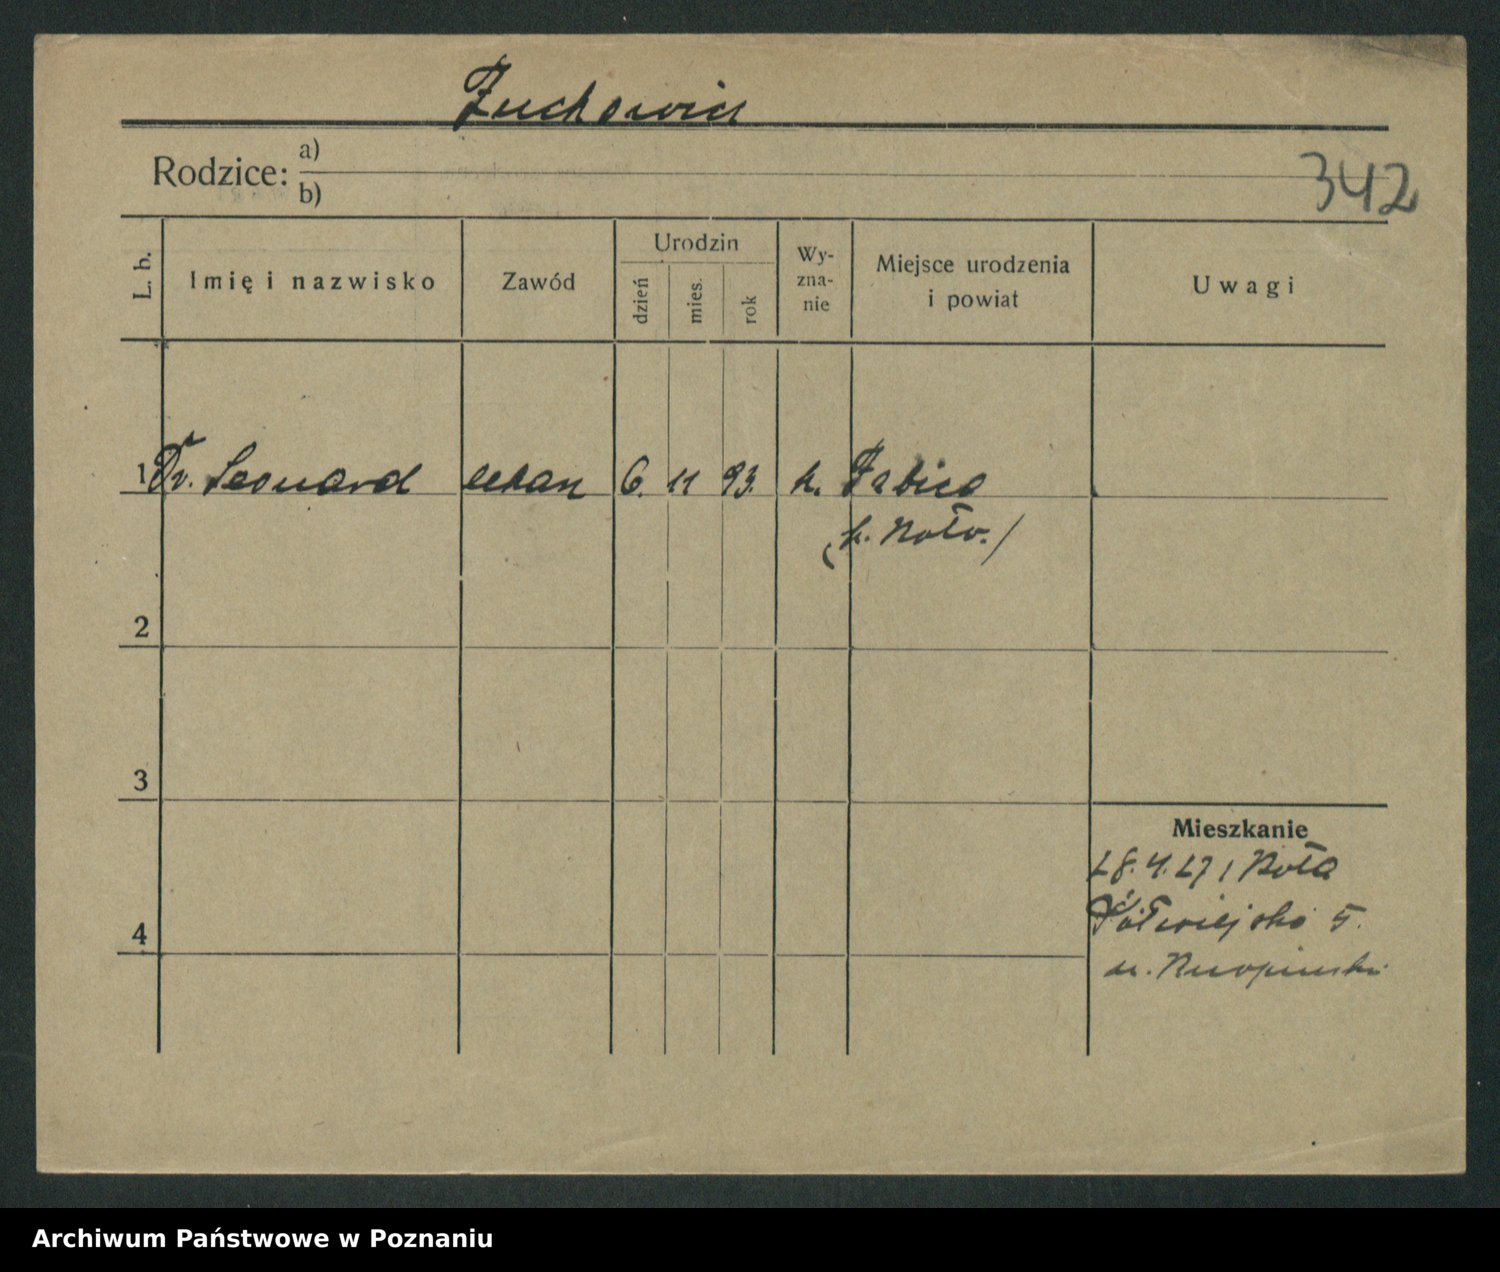 Żuchowicz
Rodzice: a)
b)
342
L. b. Imię i nazwisko Zawód Urodzin dzień mies. rok Wy-zna-nie Miejsce urodzenia i powiat Uwagi
1 Dr. Leonard lekarz 6. 11 93. k. Izbica
(k. Koło.)
2
3
Mieszkanie
28.4.27 Koła
4
Półwiejska 5.
Archiwum Państwowe w Poznaniu